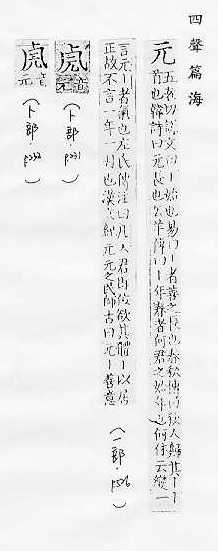 四聲篇海
元 五袁切說文曰丨始也易曰丨者善之長也春秋傳曰狄人歸其丨丨
首也韓詩曰元長也公羊傳曰丨年春者何君之始年也何休云變一
言元丨者氣也左氏傳注曰凡人君即位欲其體丨以居
正故不言一年一月也漢文紀元元之民師古曰元丨善意
(一部.
(卜部.p231)
音元
(卜部.p232)